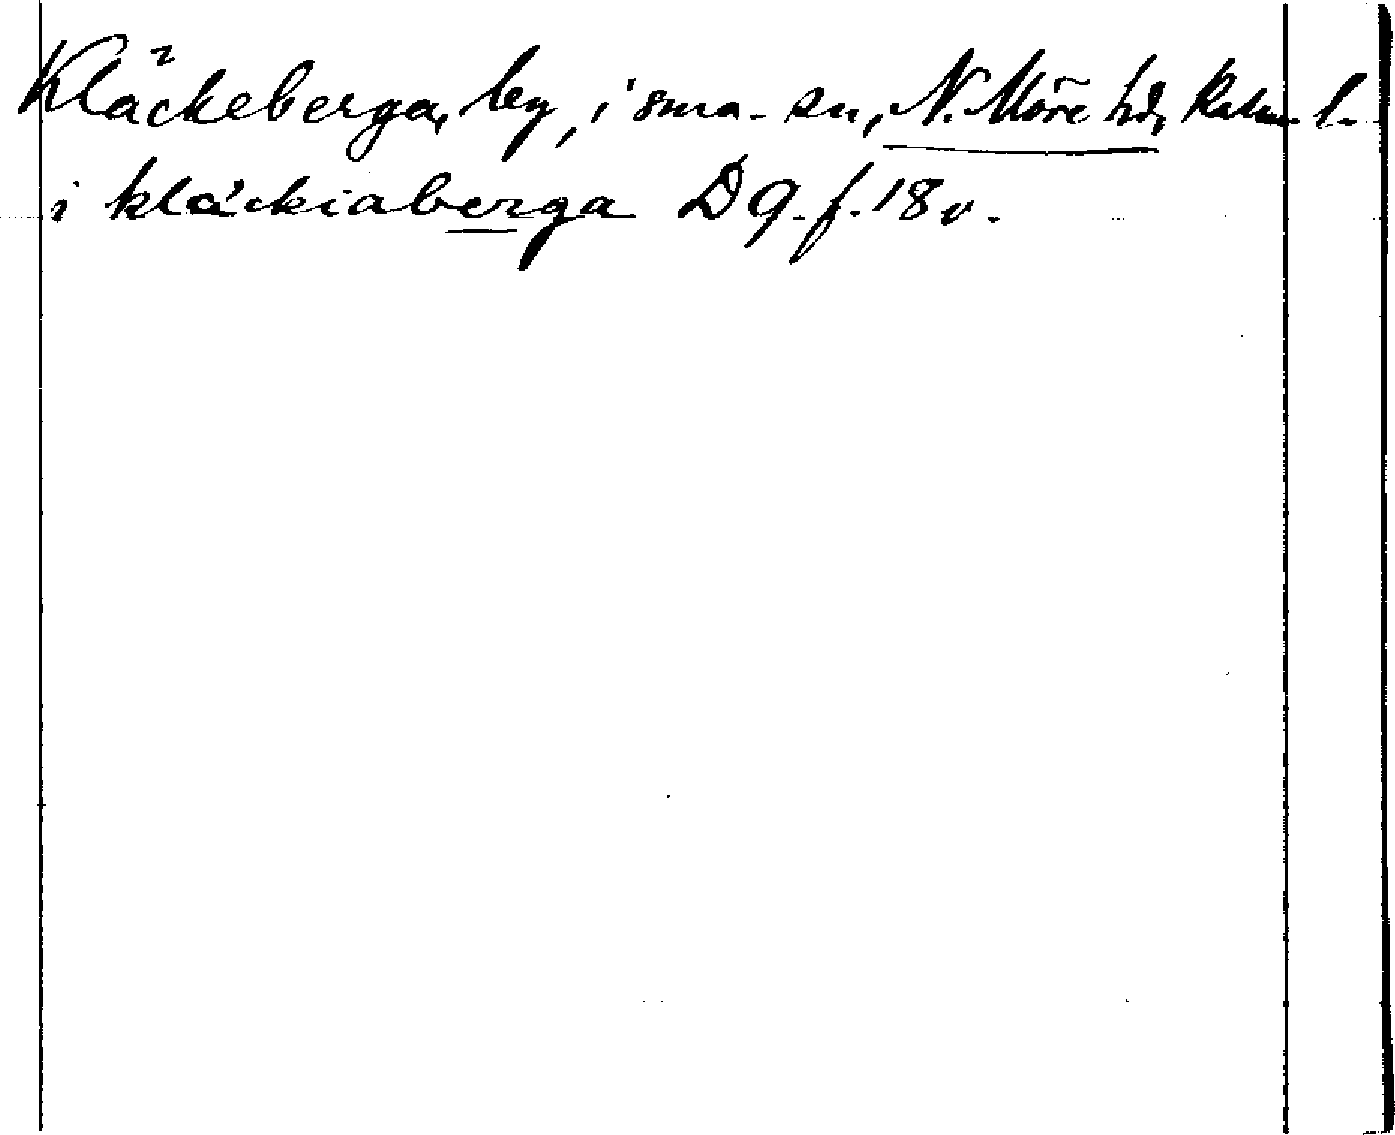 Kläckeberga, by, i sma- sn, N. Möre hd, Kalm. l.
i kläckiaberga D 9. f. 18 v.